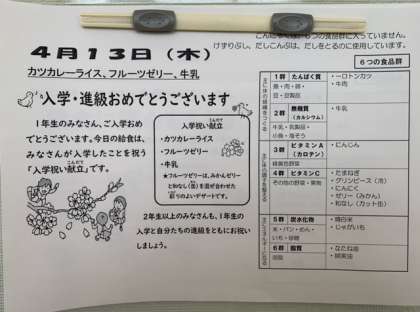 4月13日（木）
カツカレーライス、フルーツゼリー、牛乳
入学・進級おめでとうございます
1年生のみなさん、ご入学おめ
でとうございます。今日の給食は、
みなさんが入学したことを祝う
「入学祝い献立」です。
こんだて
入学祝い献立
・カツカレーライス
・フルーツゼリー
・牛乳
★フルーツゼリーは、みかんゼリー
と和なし（缶）を混ぜ合わせた
彩りのよいデザートです。
2年生以上のみなさんも、1年生の
入学と自分たちの進級をともにお祝い
しましょう。
6つの食品群に入っていません。
けずりぶし、だしこんぶは、だしをとるのに使用しています。
6つの食品群
1群 たんぱく質
魚・肉・卵・
豆・豆製品
・豚肉
2群 無機質
（カルシウム）
牛乳・乳製品・
小魚・海そう
・牛乳
3群 ビタミンA
（カロテン）
緑黄色野菜
・にんじん
4群 ビタミンC
その他の野菜・果物
・たまねぎ
・グリンピース（冷）
・にんにく
・ゼリー（みかん）
・和なし（カット缶）
5群 炭水化物
米・パン・めん・
いも・砂糖
・精白米
・じゃがいも
6群 脂質
油脂
・なたね油